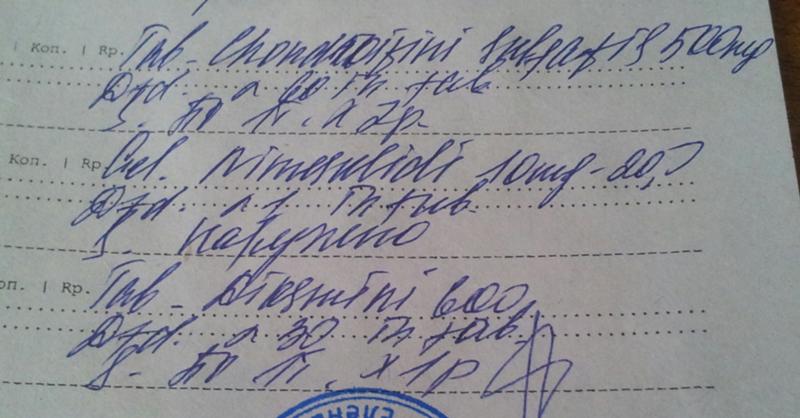 | Коп. | Rp. Tab. Chondroitini sulfatis 500mg
Dtd. n 60 in tab.
S. По 1т. x 2р.
Коп. | Rp. Gel. Nimesulidi 10mg - 20,0
Dtd. n 1 in tub.
S. наружно
оп. | Rp. Tab. 600
Dtd. n 30 in tab.
S. По 1т. x 1р